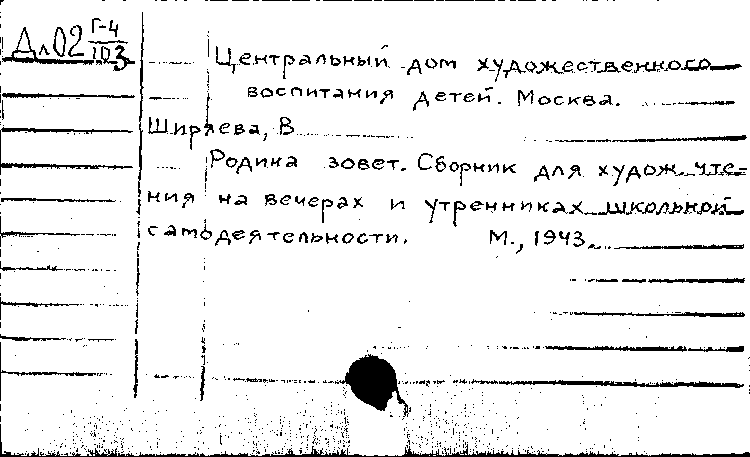 Дл02 Г-4/103
Центральный дом художественного
воспитания детей. Москва.
Ширяева, В
Родина зовет. Сборник для худож. чте=
ния на вечерах и утренниках школьной
самодеятельности. М., 1943.